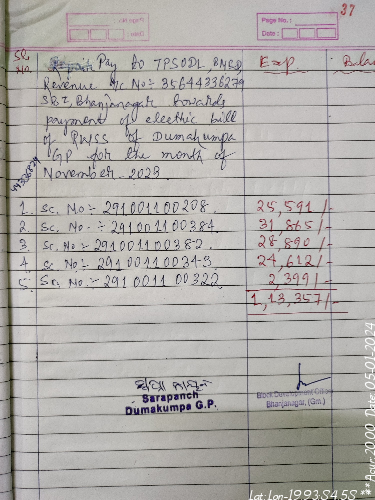 37
Page No. :
Date :
SL No.
Pay to TPSODL BNED
Exp
Bala
Revenue A/c No:- 35644336279
SBI, Bhanjanagar towards
payment of electric bill
of RWSS of Dumakumpa
GP for the month of
November-2023.
1. Sc. No:- 291001100208. 25,591/-
2. Sc. No:- 291001100384. 31,865/-
3. Sc. No:- 291001100382. 28,890/-
4 Sc. No:- 291001100343 24,612/-
5. Sc. No.:- 291001100322 2,399/-
1,13,357/-
Sarapanch
Dumakumpa G.P.
Block Development Officer
Bhanjanagar, (Gm.)
Date 05-01-2024